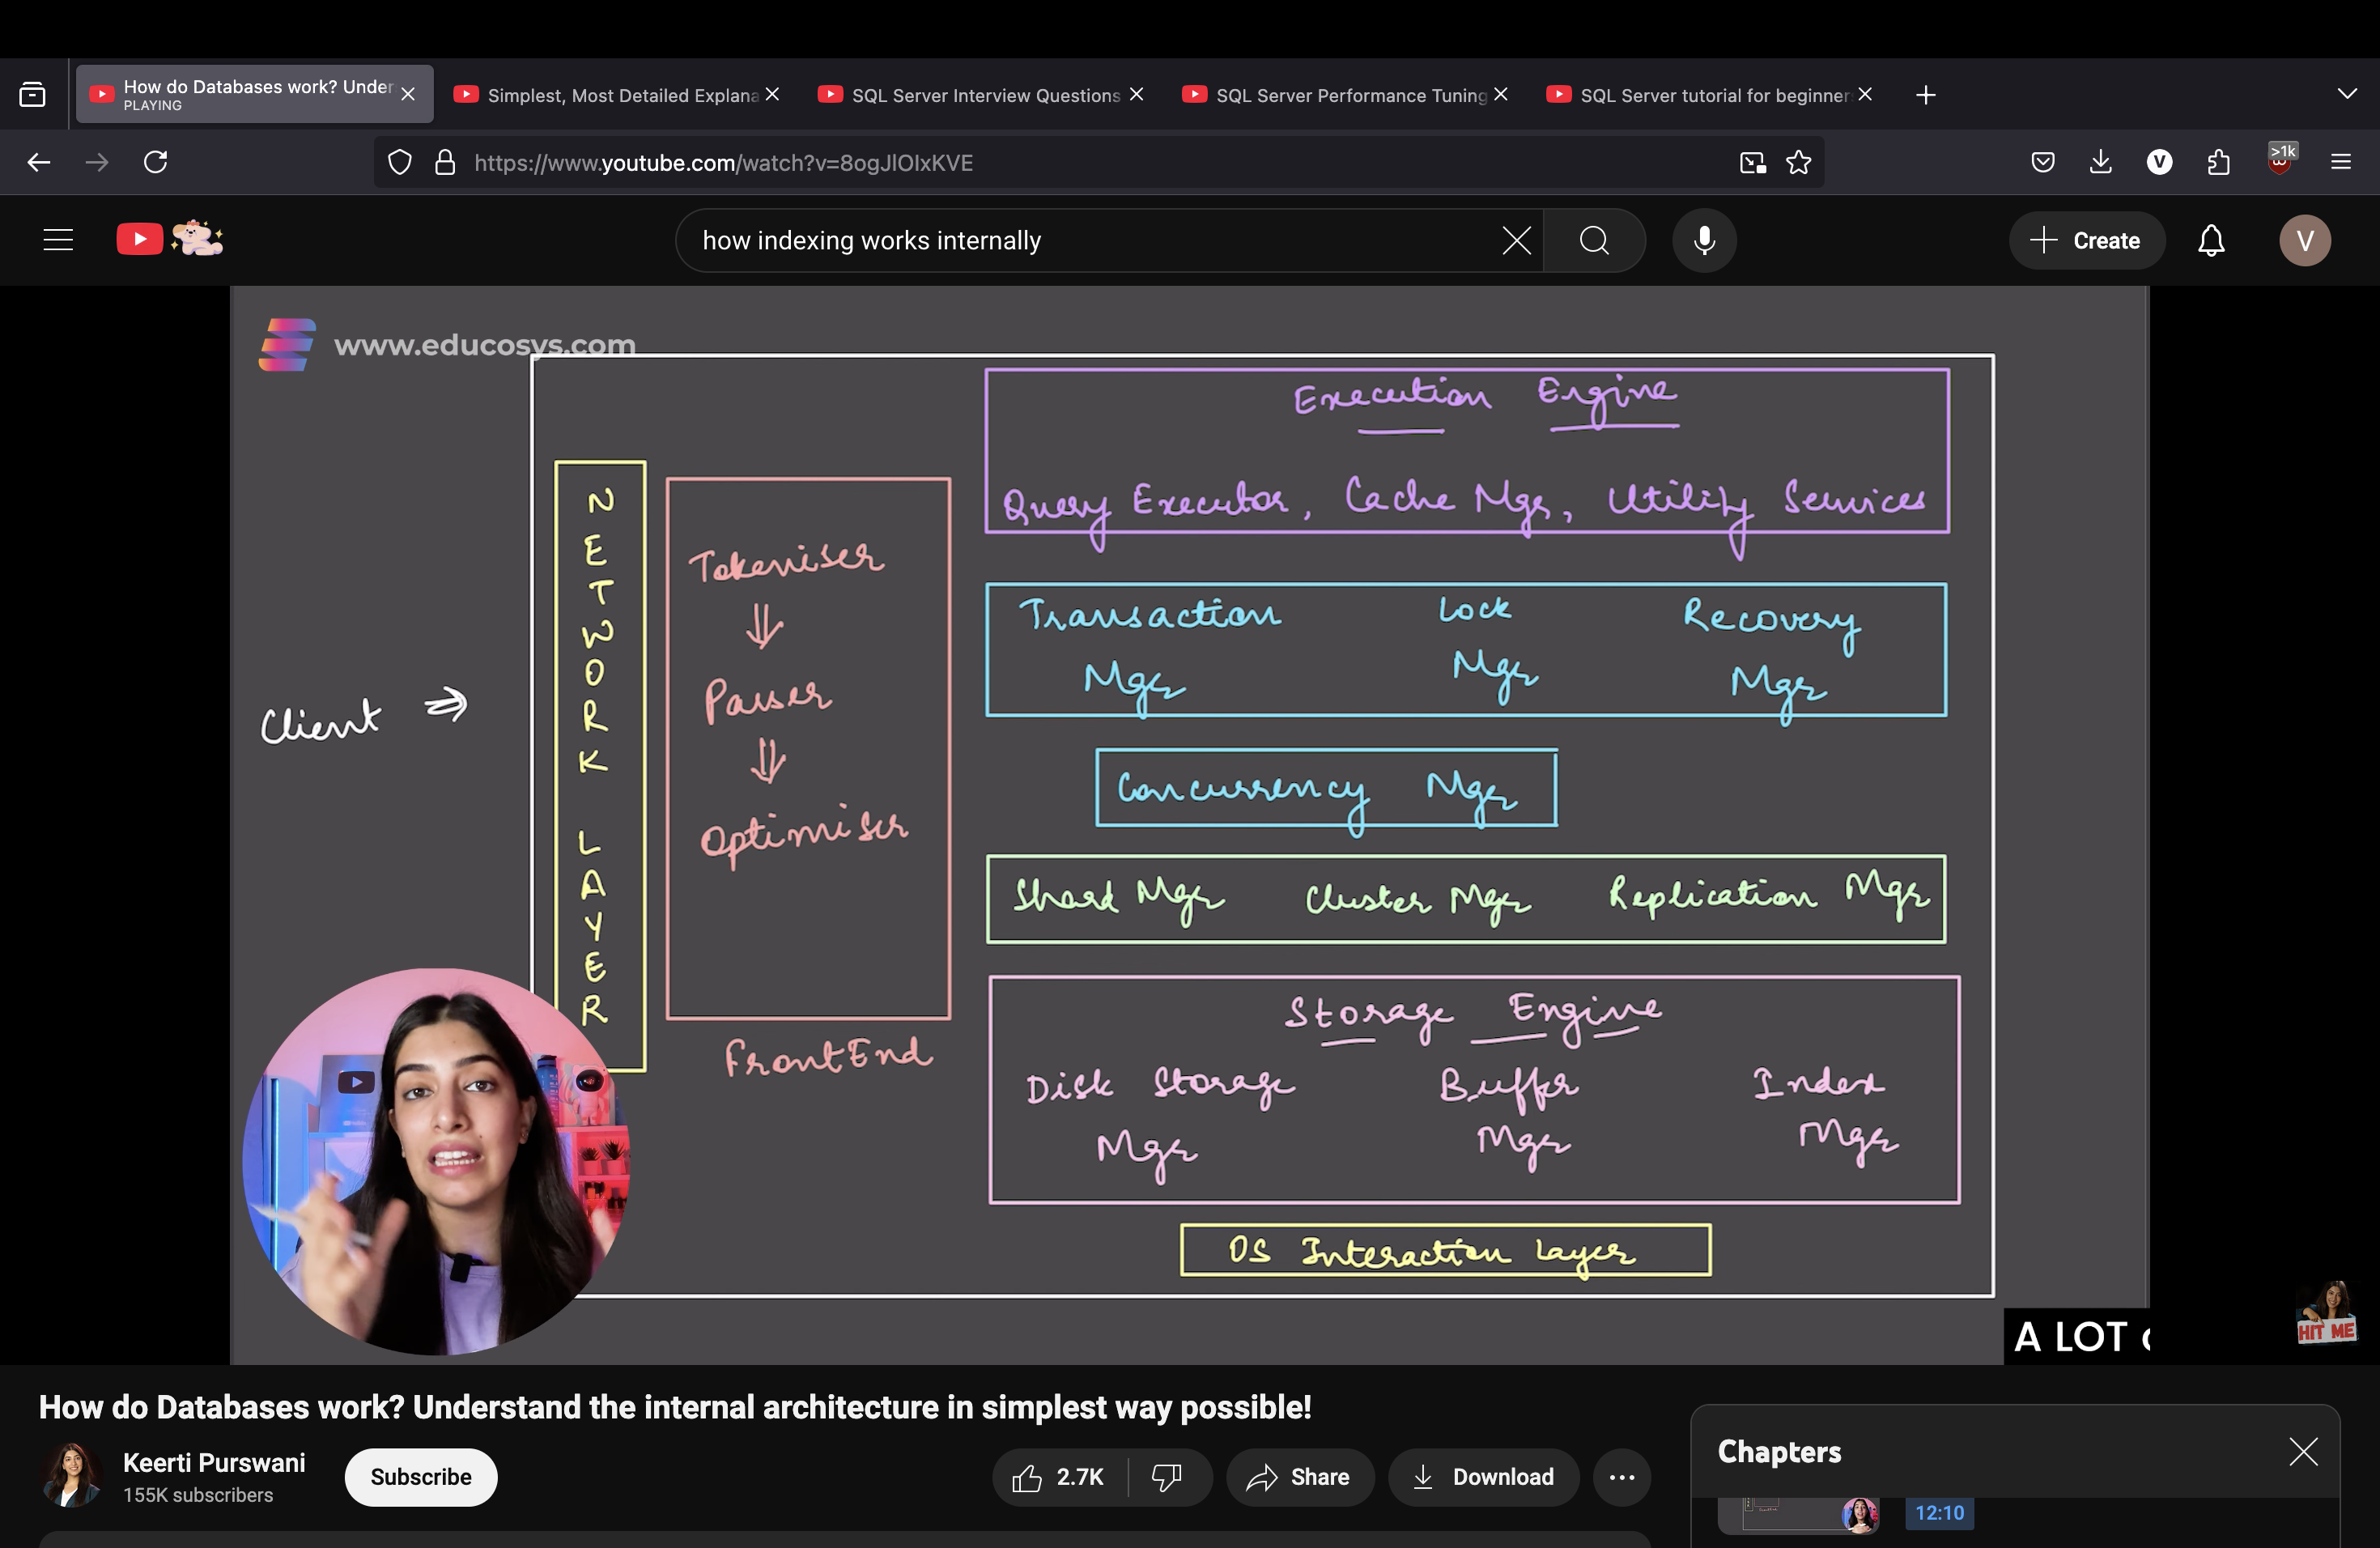 How do Databases work? Under
PLAYING
Simplest, Most Detailed Explana
SQL Server Interview Questions
SQL Server Performance Tuning
SQL Server tutorial for beginner
https://www.youtube.com/watch?v=8ogJlOIxKVE
>1k
V
how indexing works internally
Create
V
www.educosys.com
Execution Engine
Query Executor, Cache Mgr, Utility Services
Client
NETWORK LAYER
Tokeniser
Parser
Optimiser
FrontEnd
Transaction Mgr
Lock Mgr
Recovery Mgr
Concurrency Mgr
Shard Mgr Cluster Mgr Replication Mgr
Storage Engine
Disk Storage Mgr
Buffer Mgr
Index Mgr
OS Interaction Layer
A LOT
HIT ME
How do Databases work? Understand the internal architecture in simplest way possible!
Keerti Purswani
155K subscribers
Subscribe
2.7K
Share
Download
Chapters
12:10